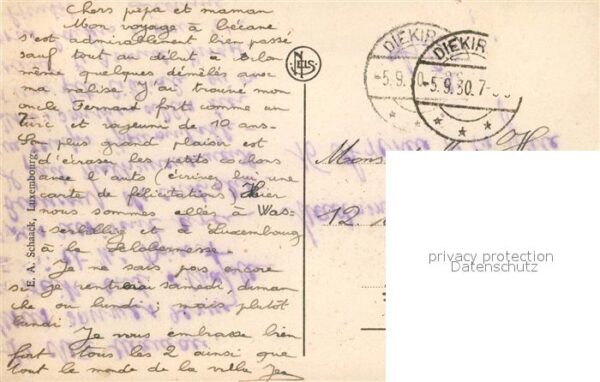 Chers pepa et maman
Mon voyage à bécane
s'est admirablement bien passé
sauf tout au début à Arlon
même quelques démélés avec
ma valise. J'ai trouvé mon
oncle Fernand fort comme un
turc et rajeuni de 10 ans.
Son plus grand plaisir est
d'écraser les petits cochons
avec l'auto (écrivez lui une
carte de félicitations) Hier
nous sommes allés à Was-
serbillig et à Luxembourg
à la
Je ne sais pas encore
si je rentrerai samedi, diman
che ou lundi; mais plutot
lundi
Je vous embrasse bien
fort tous les 2 ainsi que
tout le monde de la villa
E. A. Schaack, Luxembourg
NELS
DIEKIR
-5.9.
DIEKIR
-5.9.30.7-
Mons.
12
privacy protection
Datenschutz